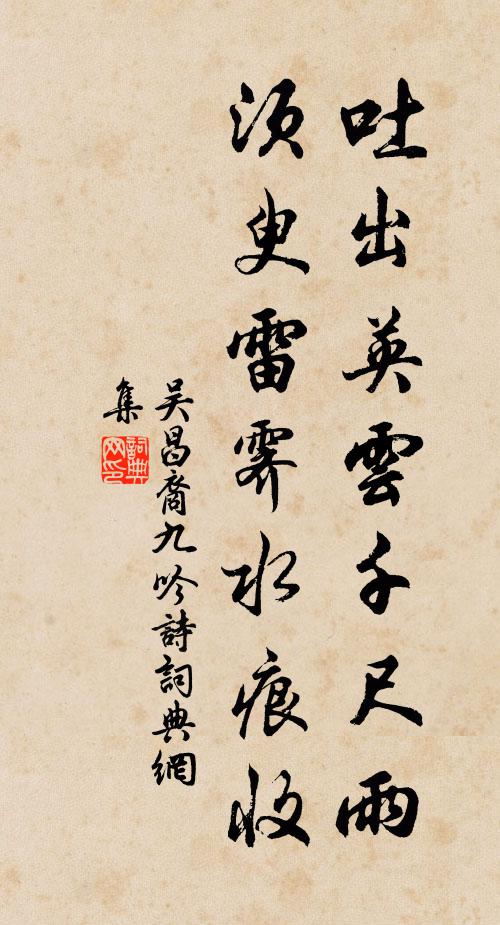 吐出英雲千尺雨
須臾雷霽水痕收
吴昌裔九吟詩詞典網
集
詞典網印